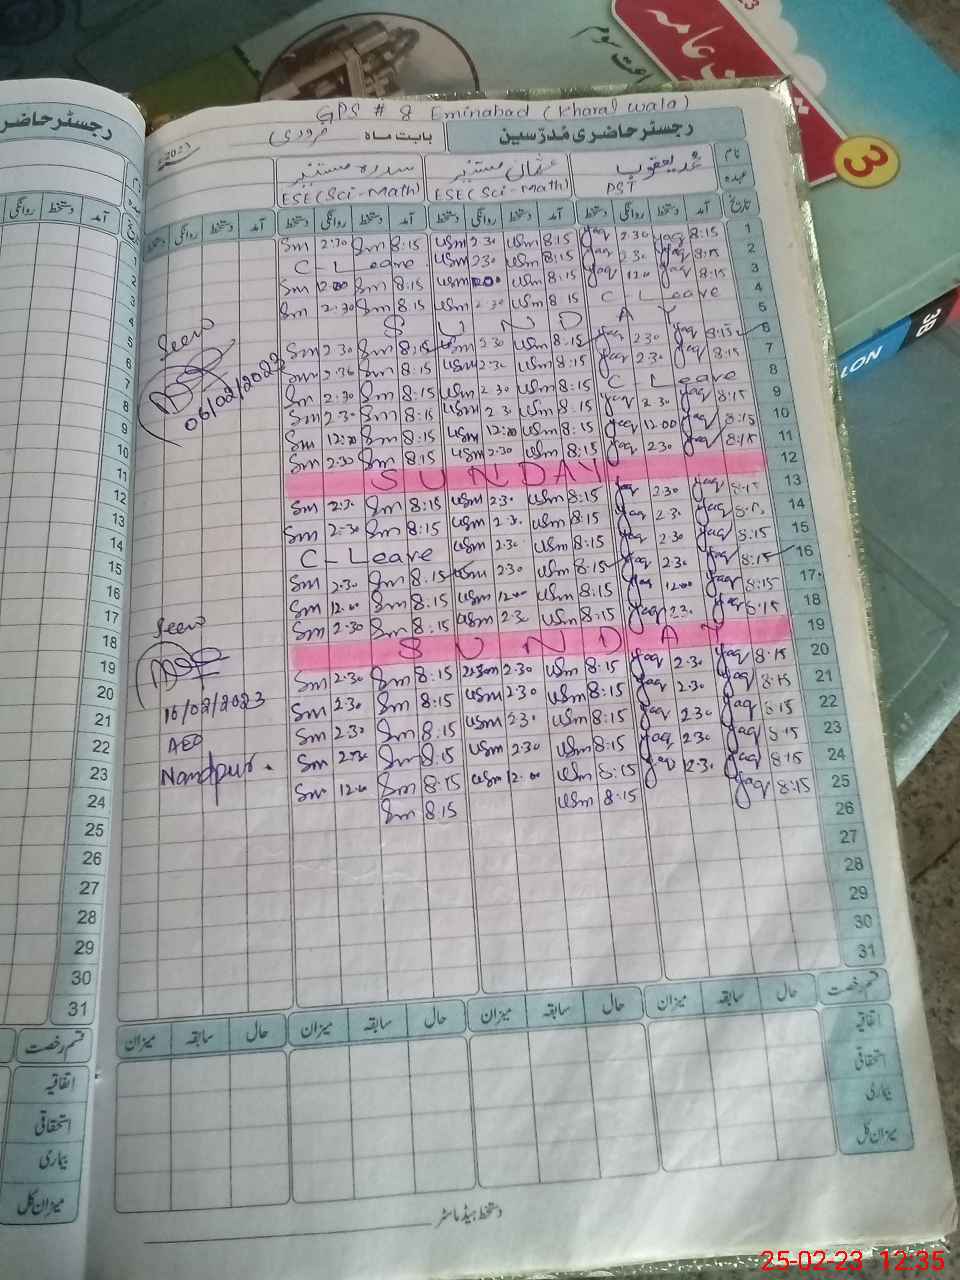 GPS # 8 Eminabad (Kharal wala)
رجسٹر حاضری مُدرّسین بابت ماہ فروری 2023
نام محمد یعقوب عثمان مستنیر سدرہ مستنیر
عہدہ PST ESE (Sci-Math) ESE (Sci-Math)
تاریخ آمد دستخط روانگی دستخط آمد دستخط روانگی دستخط آمد دستخط روانگی دستخط آمد دستخط روانگی دستخط
Sm 2:30 Sm 8:15 Usm 2:30 Usm 8:15 Yaq 2:30 Yaq 8:15 1
C - Leave Usm 2:30 Usm 8:15 Yaq 2:30 Yaq 8:15 2
Sm 12:00 Sm 8:15 Usm Usm 8:15 Yaq 12:00 Yaq 8:15 3
Sm 2:30 Sm 8:15 Usm 2:30 Usm 8:15 C - Leave 4
S U N D A Y 5
Sm 2:30 Sm 8:15 Usm 2:30 Usm 8:15 Yaq 2:30 Yaq 8:15 6
Sm 2:30 Sm 8:15 Usm 2:30 Usm 8:15 Yaq 2:30 Yaq 8:15 7
Sm 2:30 Sm 8:15 Usm 2:30 Usm 8:15 C - Leave 8
Sm 2:30 Sm 8:15 Usm 2:30 Usm 8:15 Yaq 2:30 Yaq 8:15 9
Sm 12:00 Sm 8:15 Usm 12:00 Usm 8:15 Yaq 12:00 Yaq 8:15 10
Sm 2:30 Sm 8:15 Usm 2:30 Usm 8:15 Yaq 2:30 Yaq 8:15 11
S U N D A Y 12
Sm 2:30 Sm 8:15 Usm 2:30 Usm 8:15 Yaq 2:30 Yaq 8:15 13
Sm 2:30 Sm 8:15 Usm 2:30 Usm 8:15 Yaq 2:30 Yaq 8:15 14
C - Leave Usm 2:30 Usm 8:15 Yaq 2:30 Yaq 8:15 15
Sm 2:30 Sm 8:15 Usm 2:30 Usm 8:15 Yaq 2:30 Yaq 8:15 16
Sm 12:00 Sm 8:15 Usm 12:00 Usm 8:15 Yaq 12:00 Yaq 8:15 17
Sm 2:30 Sm 8:15 Usm 2:30 Usm 8:15 Yaq 2:30 Yaq 8:15 18
S U N D A Y 19
Sm 2:30 Sm 8:15 Usm 2:30 Usm 8:15 Yaq 2:30 Yaq 8:15 20
Sm 2:30 Sm 8:15 Usm 2:30 Usm 8:15 Yaq 2:30 Yaq 8:15 21
Sm 2:30 Sm 8:15 Usm 2:30 Usm 8:15 Yaq 2:30 Yaq 8:15 22
Sm 2:30 Sm 8:15 Usm 2:30 Usm 8:15 Yaq 2:30 Yaq 8:15 23
Sm 12:00 Sm 8:15 Usm 12:00 Usm 8:15 Yaq 12:30 Yaq 8:15 24
Sm 8:15 Usm 8:15 Yaq 8:15 25
26
27
28
29
30
31
Seen
06/02/2022
Seen
16/02/2023
AEO
Nandpur.
قسم رخصت حال سابقہ میزان حال سابقہ میزان حال سابقہ میزان حال سابقہ میزان
اتفاقیہ
استحقاقی
بیماری
میزان کل
دستخط ہیڈ ماسٹر
رجسٹر حاضر
روانگی دستخط آمد
1
2
3
4
5
6
7
8
9
10
11
12
13
14
15
16
17
18
19
20
21
22
23
24
25
26
27
28
29
30
31
قسم رخصت
اتفاقیہ
استحقاقی
بیماری
میزان کل
3
3B
LON
25-02-23 12:35